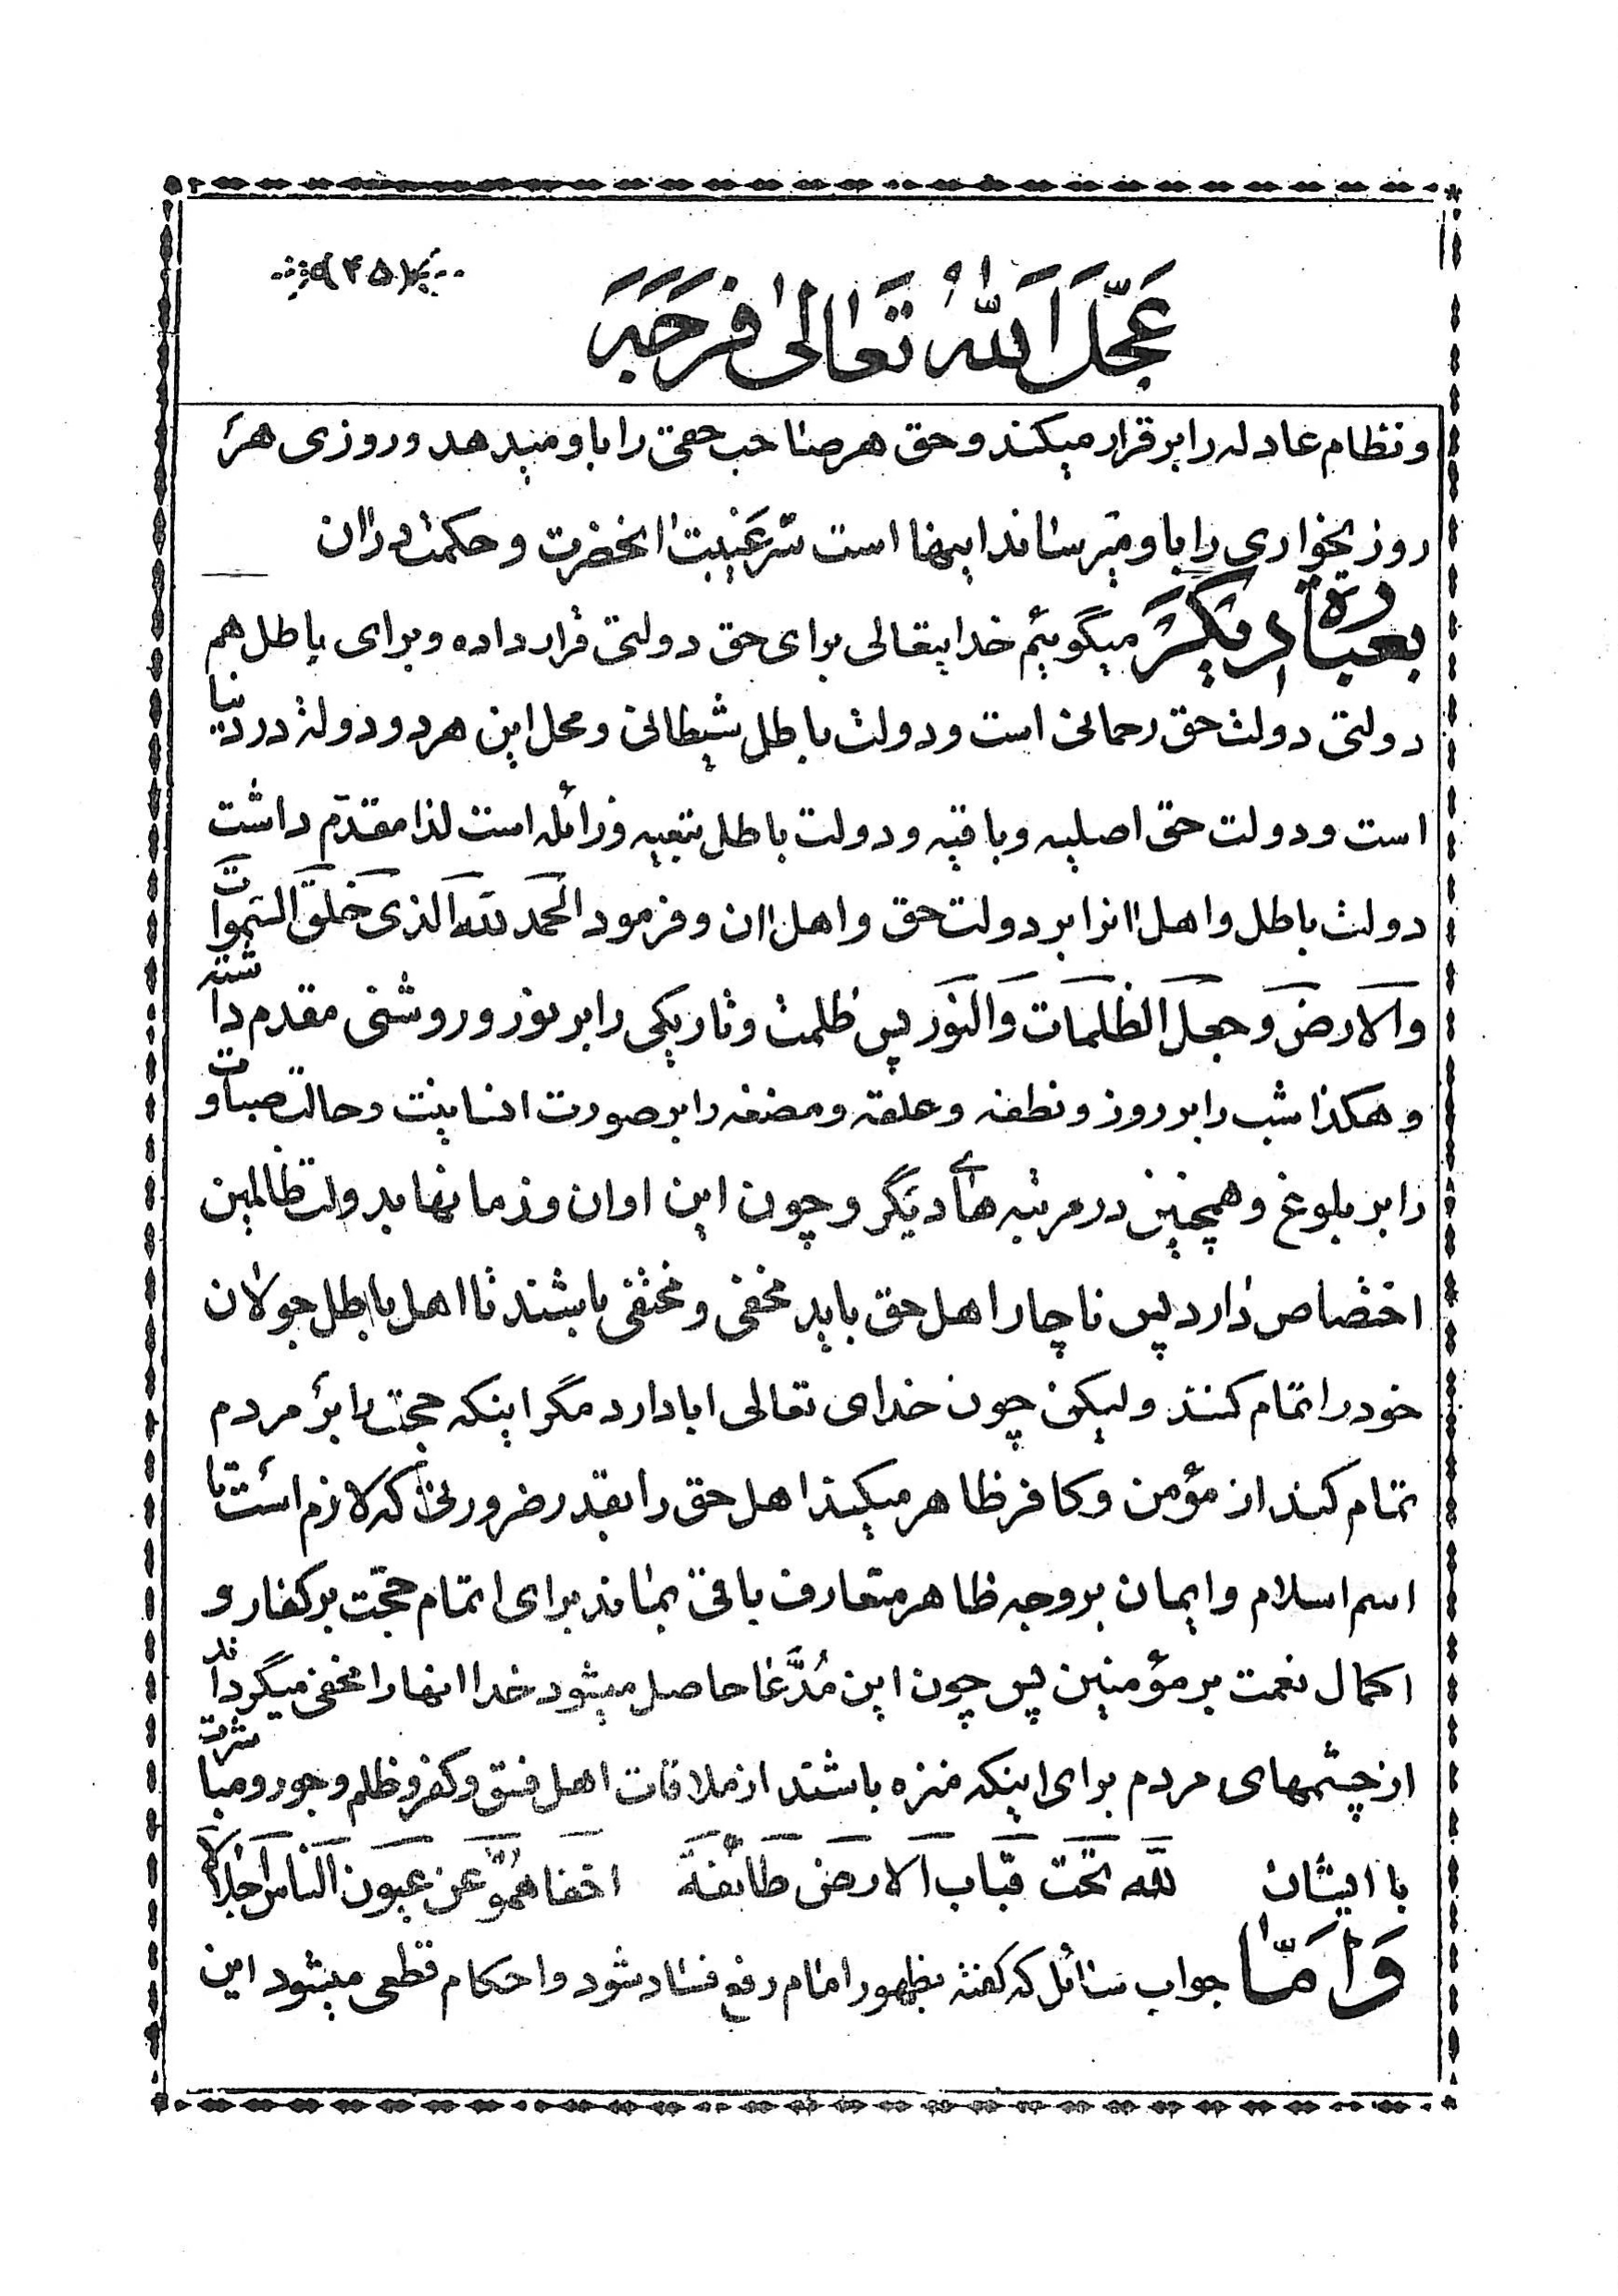 عَجَّلَ اللّٰهُ تَعَالیٰ فَرَجَهُ
و نظام عادله را برقرار میکند و حق هر صاحب حقی را باو میدهد و روزی هر
روز یخواری را باو میرساند اینها است سّر غَیبت انحضرت و حکمت در ان
بعبارة دیگر میگوئیم خدایتعالی برای حق دولتی قرار داده و برای باطل هم
دولتی دولت حق رحمانی است و دولت باطل شیطانی و محل این هر دو دولة در دنیا
است و دولت حق اصلیه و باقیه و دولت باطل تبعیه و زائله است لذا مقدّم داشت
دولت باطل و اهل انرا بر دولت حق و اهل ان و فرمود الحَمد للّه الَذی خَلَقَ السَمٰوات
وَالاَرضَ وَ جَعَلَ الظلَمات وَ النّور پس ظلمت و تاریکی را بر نور و روشنی مقدم داشته
و هکذا شب را بر روز و نطفه و علقه و مضغه را بر صورت انسانیت و حالت صباوت
را بر بلوغ و همچنین در مرتبه های دیگر و چون این اوان و زمانها بدولت ظالمین
اختصاص دارد پس ناچار اهل حق باید مخفی و مختفی باشند تا اهل باطل جولان
خود را تمام کنند ولیکن چون خدای تعالی ابا دارد مگر اینکه حجت را بر مردم
تمام کند از مؤمن و کافر ظاهر میکند اهل حق را بقدر ضرورتی که لازم است تا
اسم اسلام و ایمان بر وجه ظاهر متعارف باقی بماند برای اتمام حجّت بر کفار و
اکمال نعمت بر مؤمنین پس چون این مُدَّعا حاصل میشود خدا انها را مخفی میگرداند
از چشمهای مردم برای اینکه منزه باشند از ملاقات اهل فسق و کفر و ظلم و جور و مباشرت
با ایشان للّه تَحتَ قبَاب الاَرض طَائفَة اخفاهُمُو عَن عیون الناس اجلالاً
وَ اَمّا جواب سائل که گفته بظهور امام رفع فساد شود و احکام قطعی میشود این